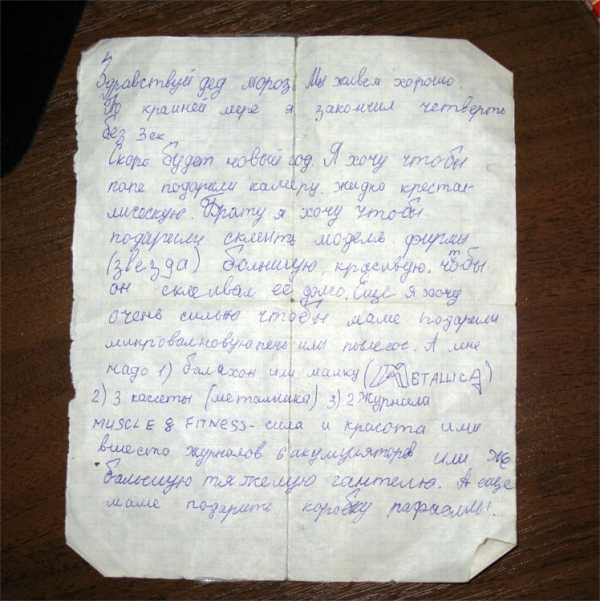 Здравствуй дед мороз. Мы живем хорошо.
По крайней мере я закончил четверть
без 3ек.
Скоро будет новый год. Я хочу чтобы
папе подарили камеру жидко кристал-
лическую. Брату я хочу чтобы
подарили склеить модель фирмы
(звезда) большую, красивую, чтобы
он склеивал её долго. Еще я хочу
очень сильно чтобы маме подарили
микроволновую печь или пылесос. А мне
надо 1) балахон или майку (METALLICA)
2) 3 кассеты (металлика) 3) 2 журнала
MUSCLE & FITNESS - сила и красота или
вместо журналов 6 акумуляторов или же
большую тяжелую гантелю. А еще
маме подарить коробку рафаеллы.